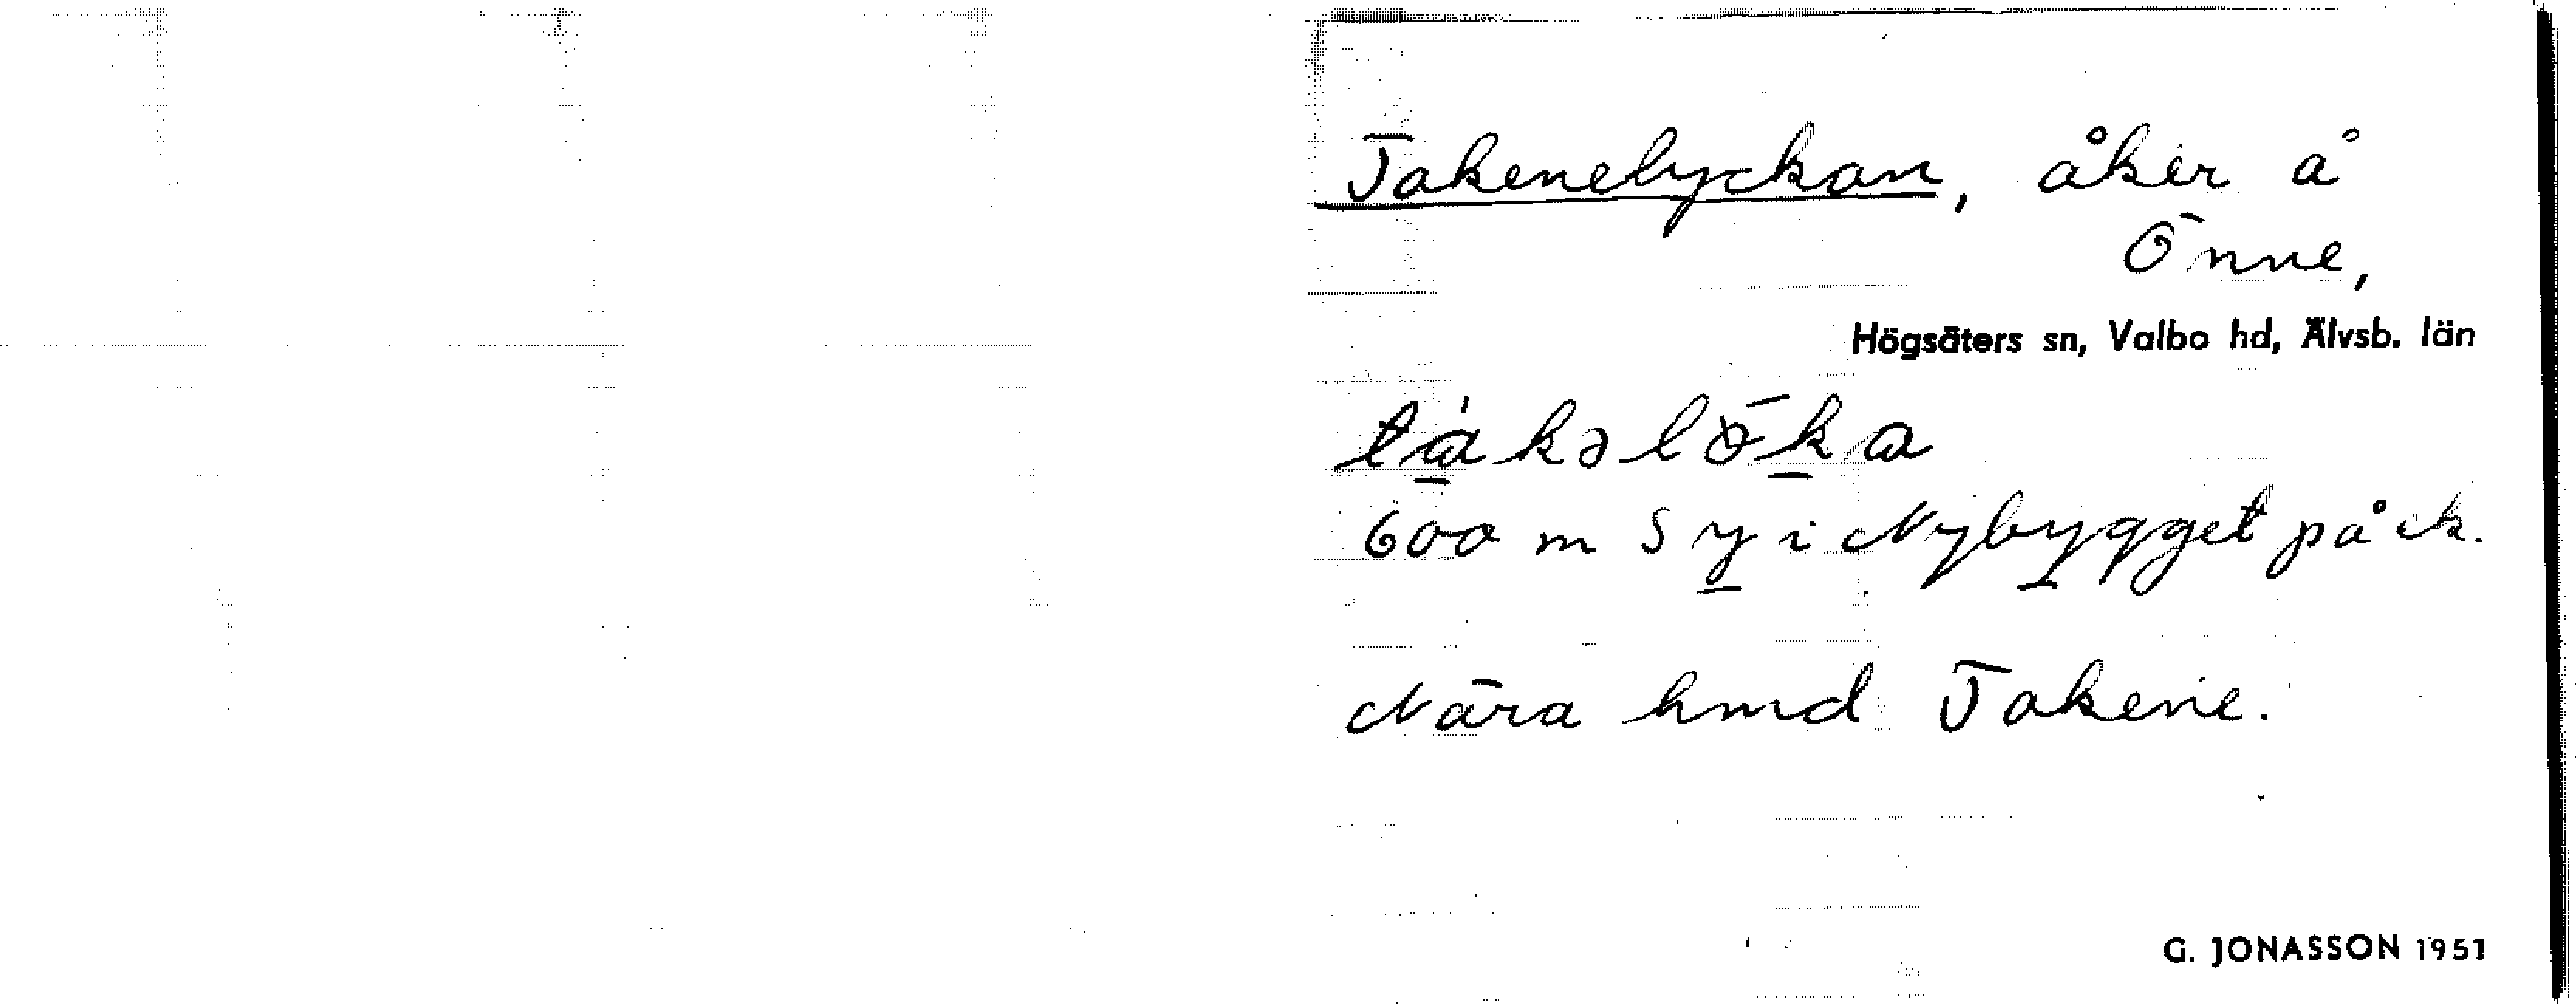 Takenelyckan, åker å
Önne,
Högsäters sn, Valbo hd, Älvsb. län
tàkəlȫka
600 m S y i Nybygget på ek.
Nära hmd Takene.
G. JONASSON 1951